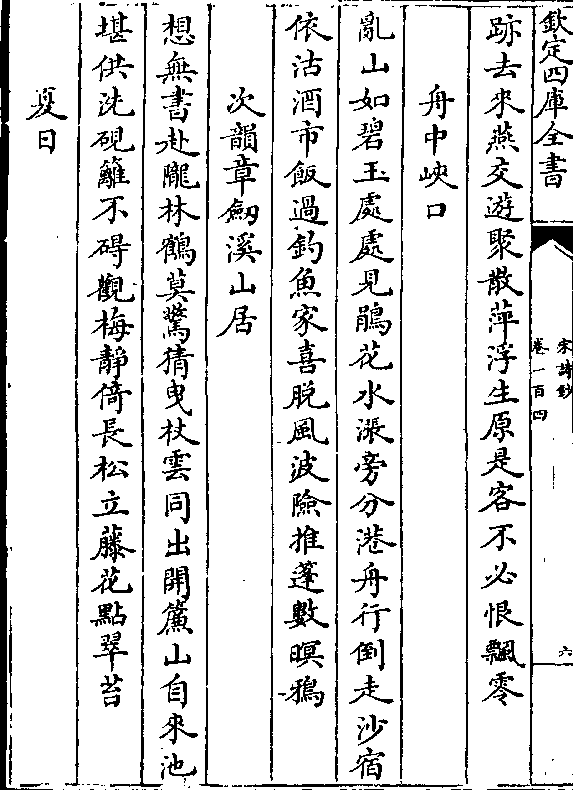 欽定四庫全書
宋詩鈔
卷一百四
六
跡去來燕交遊聚散萍浮生原是客不必恨飄零
舟中峽口
亂山如碧玉處處見鵑花水漲旁分港舟行倒走沙宿
依沽酒市飯過釣魚家喜脫風波險推蓬數暝鴉
次韻章劔溪山居
想無書赴隴林鶴莫驚猜曳杖雲同出開簾山自來池
堪供洗硯籬不碍觀梅靜倚長松立藤花點翠苔
夏日